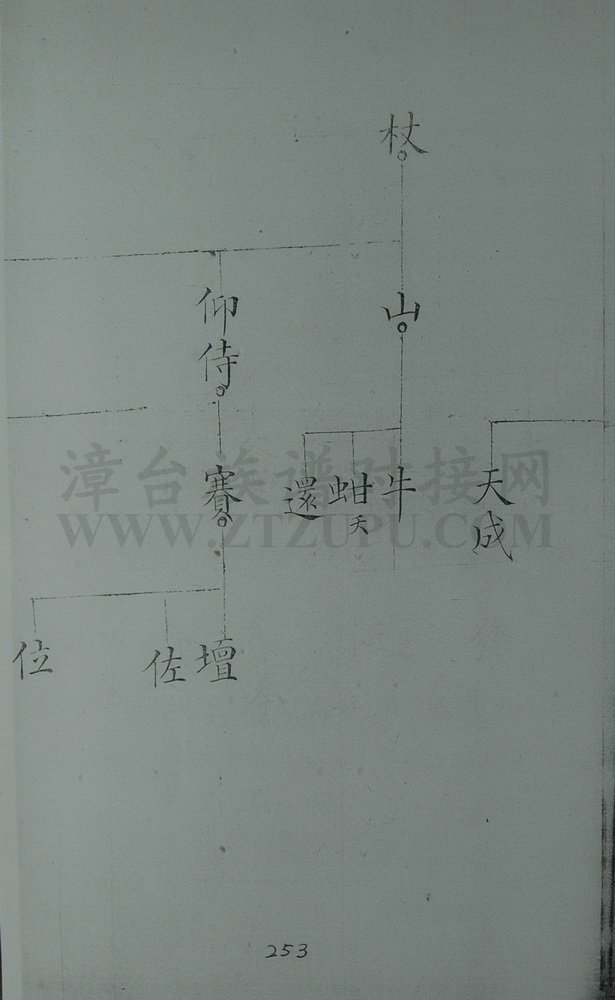 杖
山
仰侍
天成
牛
蚶
天
還
賽
壇
佐
位
漳台族谱对接网
WWW.ZTZUPU.COM
253